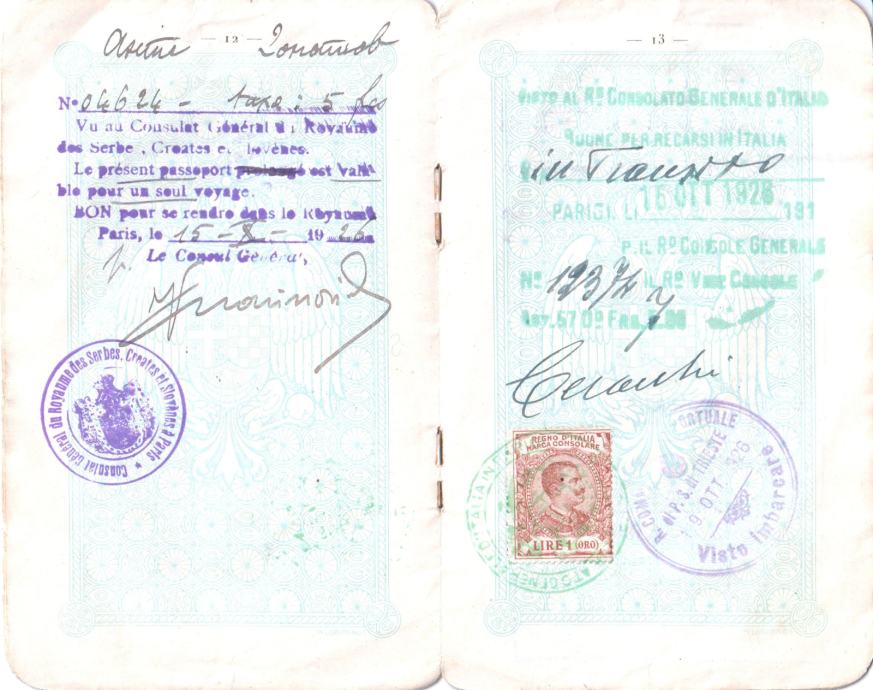 — 12 —
Nº 04624 - taxa: 5 fcs
Vu au Consulat Général du Royaume
des Serbes, Croates et Slovènes.
Le présent passeport est vala-
ble pour un seul voyage.
BON pour se rendre dans le Royaume
Paris, le 15 - X - 1926
Le Consul Général,
Consulat Général du Royaume des Serbes, Croates et Slovènes à Paris
— 13 —
VISTO AL Rº CONSOLATO GENERALE D'ITALIA
BUONO PER RECARSI IN ITALIA
in Transito
PARIGI, LI 16 OTT 1926 191
P. IL Rº CONSOLE GENERALE
Nº IL Rº VICE CONSOLE
ART. 57 Dº FRS.
REGNO D'ITALIA
MARCA CONSOLARE
LIRE 1 (ORO)
R. COMM
PORTUALE
DI P. S. DI TRIESTE
19 OTT 1926
Visto imbarcare